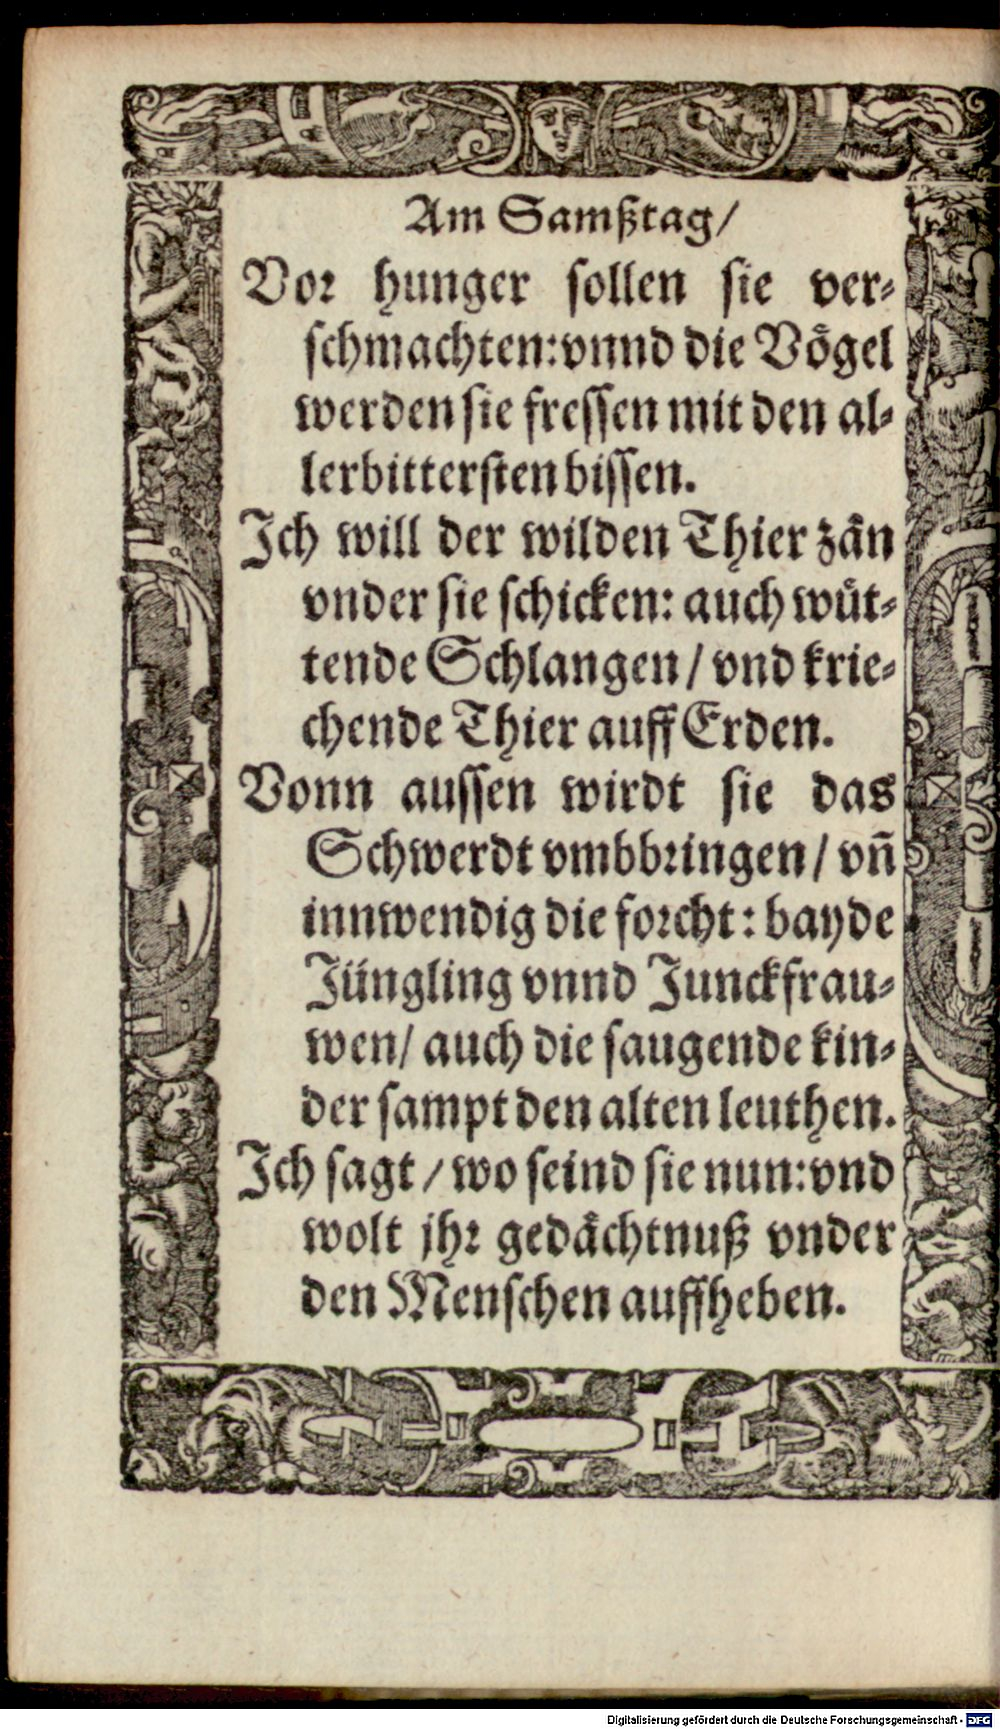 Am Samßtag/
Vor hunger sollen sie ver-
schmachten: vnnd die Voͤgel
werden sie fressen mit den al-
lerbittersten bissen.
Ich will der wilden Thier zaͤn
vnder sie schicken: auch wuͤt-
tende Schlangen / vnd krie-
chende Thier auff Erden.
Vonn aussen wirdt sie das
Schwerdt vmbbringen / vn̄
innwendig die forcht: bayde
Jüngling vnnd Junckfrau-
wen/ auch die saugende kin-
der sampt den alten leuthen.
Ich sagt / wo seind sie nun: vnd
wolt jhr gedaͤchtnuß vnder
den Menschen auffheben.
Digitalisierung gefördert durch die Deutsche Forschungsgemeinschaft - DFG